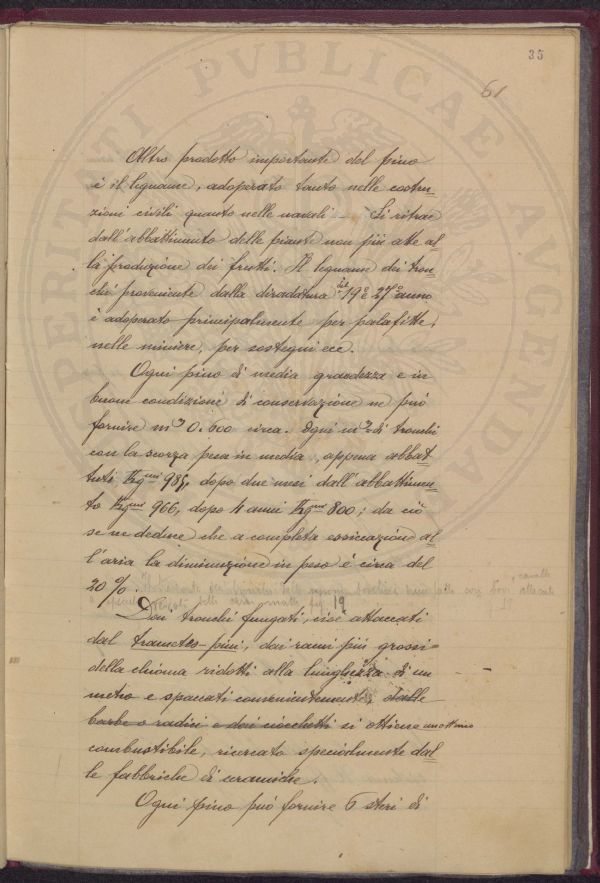 35
61
Altro prodotto importante del pino
è il legname, adoperato tanto nelle costru-
zioni civili quanto nelle navali — Si ritrae
dall'abbattimento delle piante non più atte al
la produzione dei frutti. Il legname dei tron
chi proveniente dalla diradatura del 19° 27° anno
è adoperato principalmente per palafitte,
nelle miniere, per sostegni ecc.
Ogni pino di media grandezza e in
buone condizione di conservazione ne può
fornire m³ 0.600 circa. Ogni m³ di tronchi
con la scorza pesa in media, appena abbat
tuti Kgmi 985, dopo due mesi dall'abbattimen-
to Kgmi 966, dopo 4 anni Kgmi 800; da ciò
se ne deduce che a completa essicazione al
l'aria la diminuzione in peso è circa del
20%.
19
Dai tronchi fungati, cioè attaccati
dal trametes-pini, dai rami più grossi
della chioma ridotti alla lunghezza di un
metro e spaccati convenientemente, dalle
barbe o radici e dai ciocchetti si ottiene un ottimo
combustibile, ricercato specialmente dal
le fabbriche di ceramiche.
Ogni pino può fornire 6 steri di
PERITATI PVBLICAE AVGENDAE